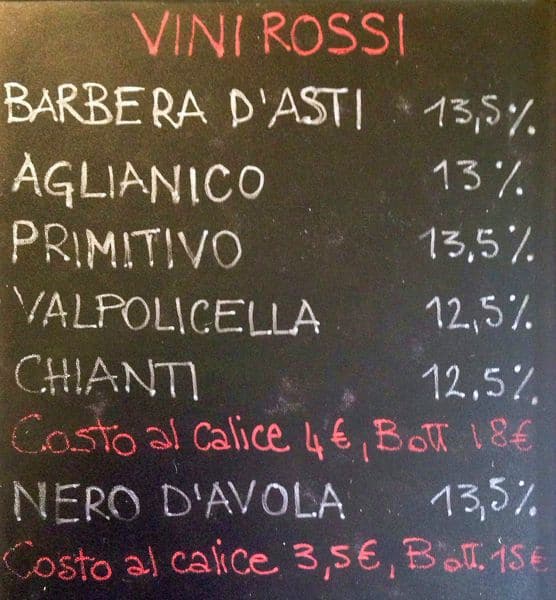 VINI ROSSI
BARBERA D'ASTI 13,5%
AGLIANICO 13%
PRIMITIVO 13.5%
VALPOLICELLA 12,5%
CHIANTI 12.5%
Costo al calice 4€, Bott. 18€
NERO D'AVOLA 13,5%
Costo al calice 3,5€, Bott. 15€